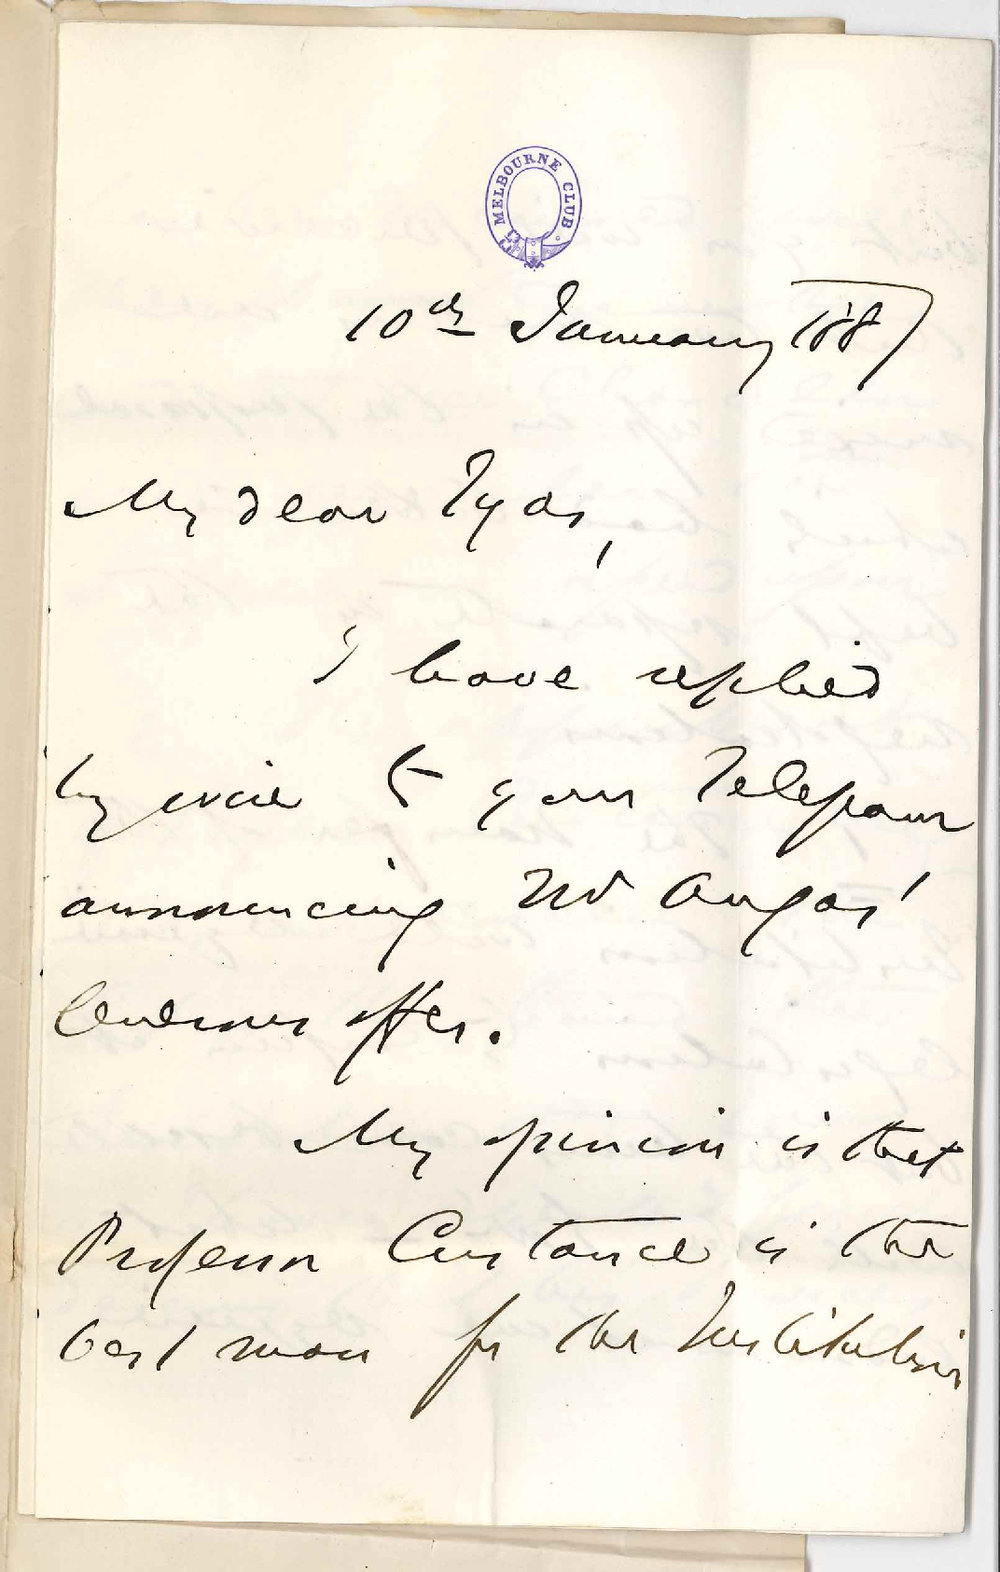 MELBOURNE CLUB
10th January 1887
My dear Tyas,
I have replied
by wire to your Telegram
announcing Mr Angas'
Generous offer.
My opinion is that
Professor Custance is the
best man for the Institution